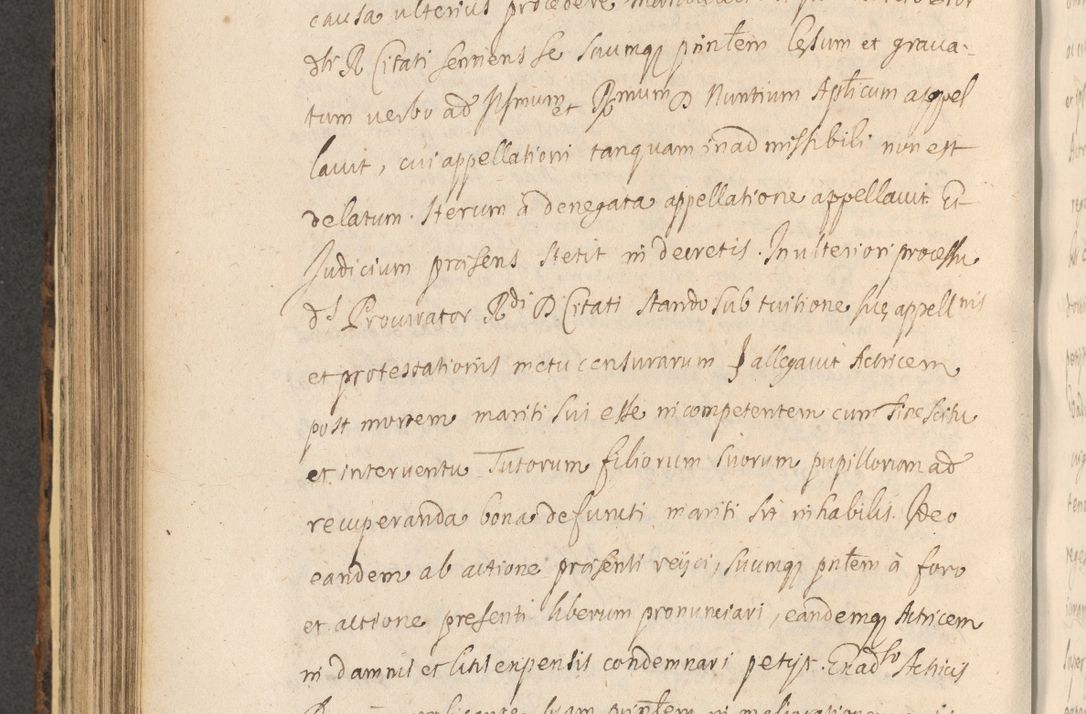 causa ulterius procedere
dti R Citati sentiens se suumq printem lęsum et grava-
tum verbo ad Illmum et Rmum D Nuntium Aplicum appel
lavit, cui appellationi tanquam inadmissibili non est
delatum. Iterum a denegata appellatione appellavit. Et
Judicium præsens stetit in decretis. In ulteriori processu
ds Procurator Rdi D Citati stando sub tuitione suę appellnis
et protestationis metu censurarum allegavit Actricem
post mortem mariti sui esse incompetentem cum sine scitu
et interventu Tutorum filiorum suorum pupillorum ad
recuperanda bona defuncti mariti sit inhabilis. Ideo
eandem ab actione præsenti reijci, suumq pntem à foro
et actione presenti liberum pronunciari, eandemq Actricem
in damnis et litis expensis condemnari petijt. Ex adso Actricis
replicante suam printem in melioratione